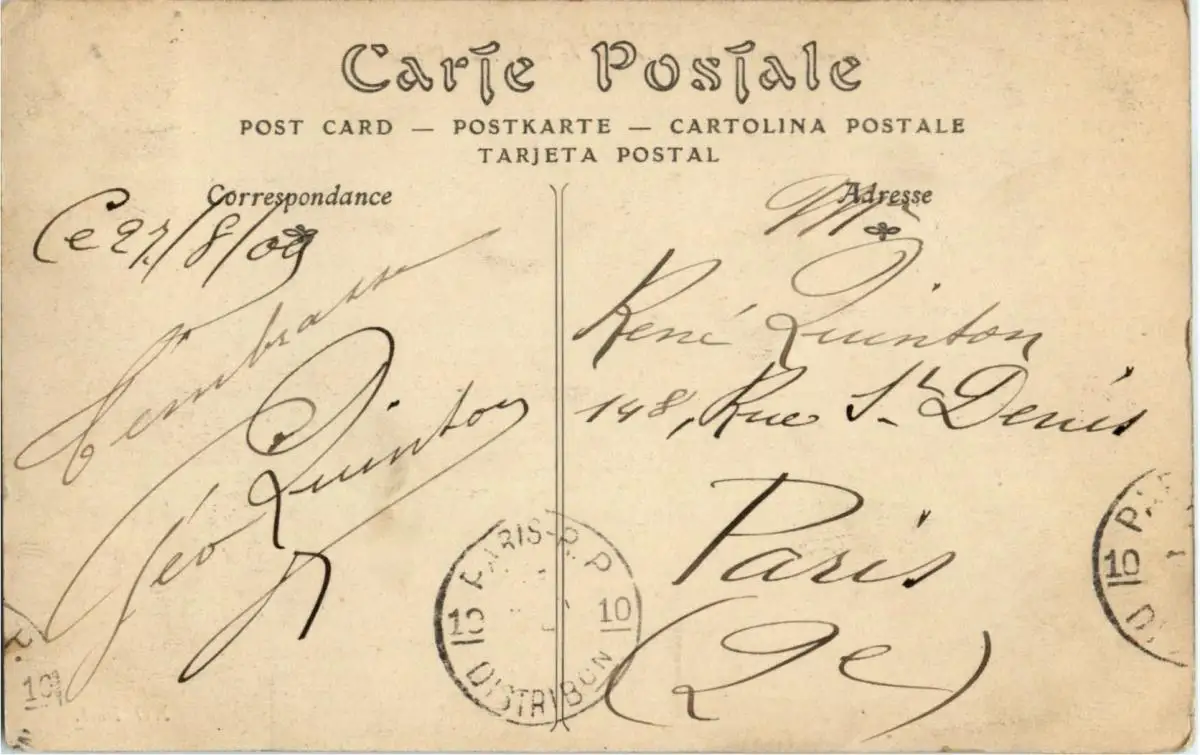 Carte Postale
POST CARD — POSTKARTE — CARTOLINA POSTALE
TARJETA POSTAL
Correspondance
Ce 27/8/09
t'embrasse
Géo Quinton
Adresse
Mr
René Quinton
148, Rue St Denis
Paris
(2e)
PARIS R.P
10 10
DISTRIBUON
PA
10
10